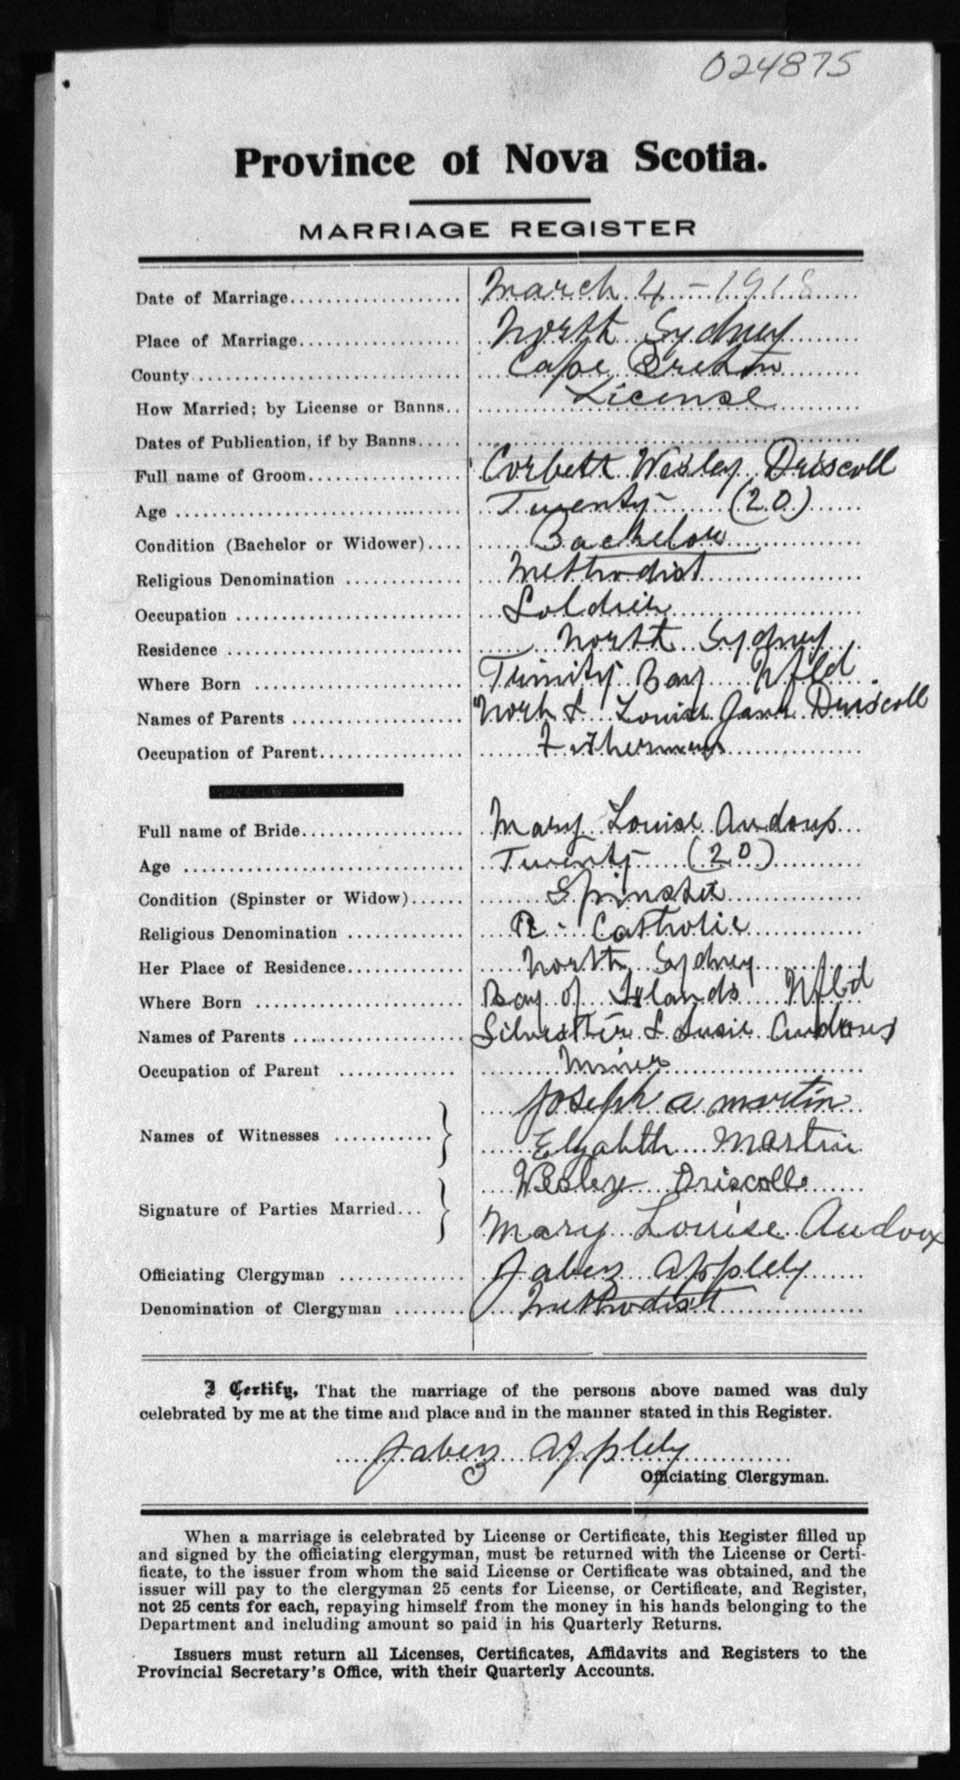 024875
Province of Nova Scotia.
MARRIAGE REGISTER
Date of Marriage March 4 - 1918
Place of Marriage North Sydney
County Cape Breton
How Married; by License or Banns License
Dates of Publication, if by Banns
Full name of Groom Corbett Wesley Driscoll
Age Twenty (20)
Condition (Bachelor or Widower) Bachelor
Religious Denomination Methodist
Occupation Soldier
Residence North Sydney
Where Born Trinity Bay Nfld
Names of Parents & Louise Jane Driscoll
Occupation of Parent Fisherman
Full name of Bride Mary Louise
Age Twenty (20)
Condition (Spinster or Widow) Spinster
Religious Denomination R. Catholic
Her Place of Residence North Sydney
Where Born Bay of Islands Nfld
Names of Parents & Susie
Occupation of Parent Miner
Names of Witnesses Joseph a martin
Elizabeth Martin
Signature of Parties Married Wesley Driscoll
Mary Louise Audoux
Officiating Clergyman Jabez Appleby
Denomination of Clergyman Methodist
I Certify, That the marriage of the persons above named was duly
celebrated by me at the time and place and in the manner stated in this Register.
Jabez Appleby
Officiating Clergyman.
When a marriage is celebrated by License or Certificate, this Register filled up
and signed by the officiating clergyman, must be returned with the License or Certi-
ficate, to the issuer from whom the said License or Certificate was obtained, and the
issuer will pay to the clergyman 25 cents for License, or Certificate, and Register,
not 25 cents for each, repaying himself from the money in his hands belonging to the
Department and including amount so paid in his Quarterly Returns.
Issuers must return all Licenses, Certificates, Affidavits and Registers to the
Provincial Secretary's Office, with their Quarterly Accounts.